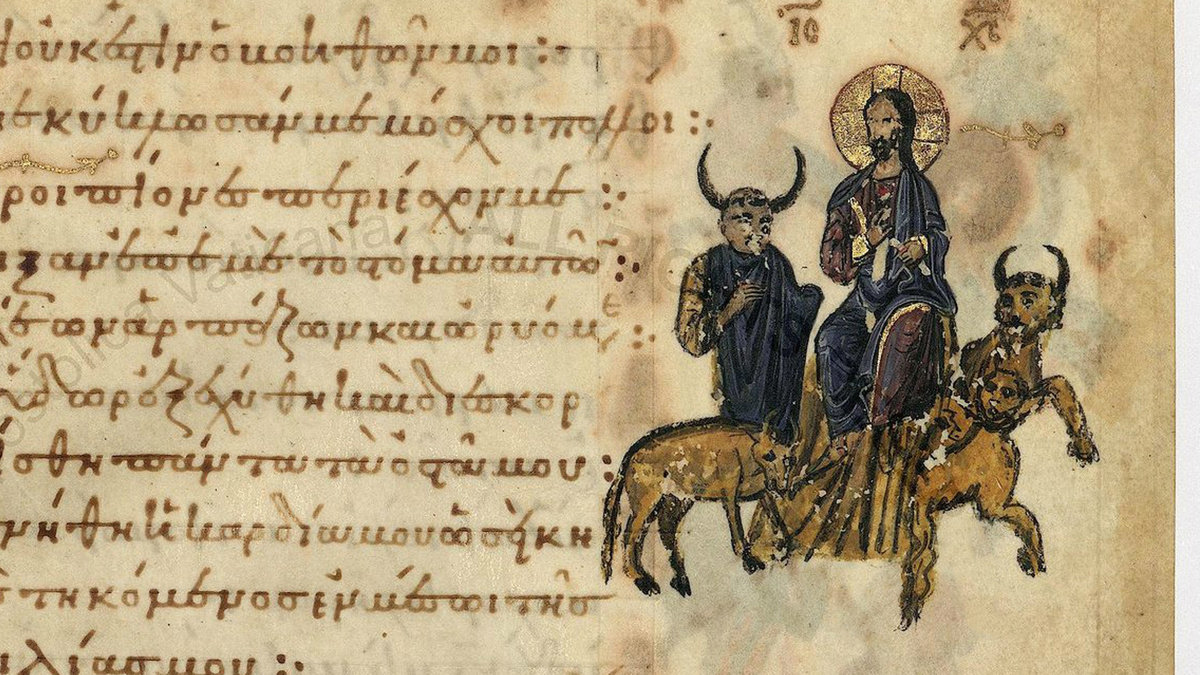 ΙΣ ΧΣ
οὐκ ἔστιν ὁ βοηθῶν μοι :·
εκύκλωσάν με μόσχοι πολλοι :·
ροι πίονες περιέσχον με :·
ξαν ἐπ ἐμὲ τὸ στόμα αὐτῶν :·
λέων ἁρπάζων καὶ ὠρυόμε :·
ὕδωρ ἐξεχύθην καὶ διεσκορ
ίσθη πάντα τὰ ὀστᾶ μου :·
νήθη ἡ καρδία μου ὡσεὶ κη
ς τηκόμενος ἐν μέσωι τῆς
ιλίας μου :·